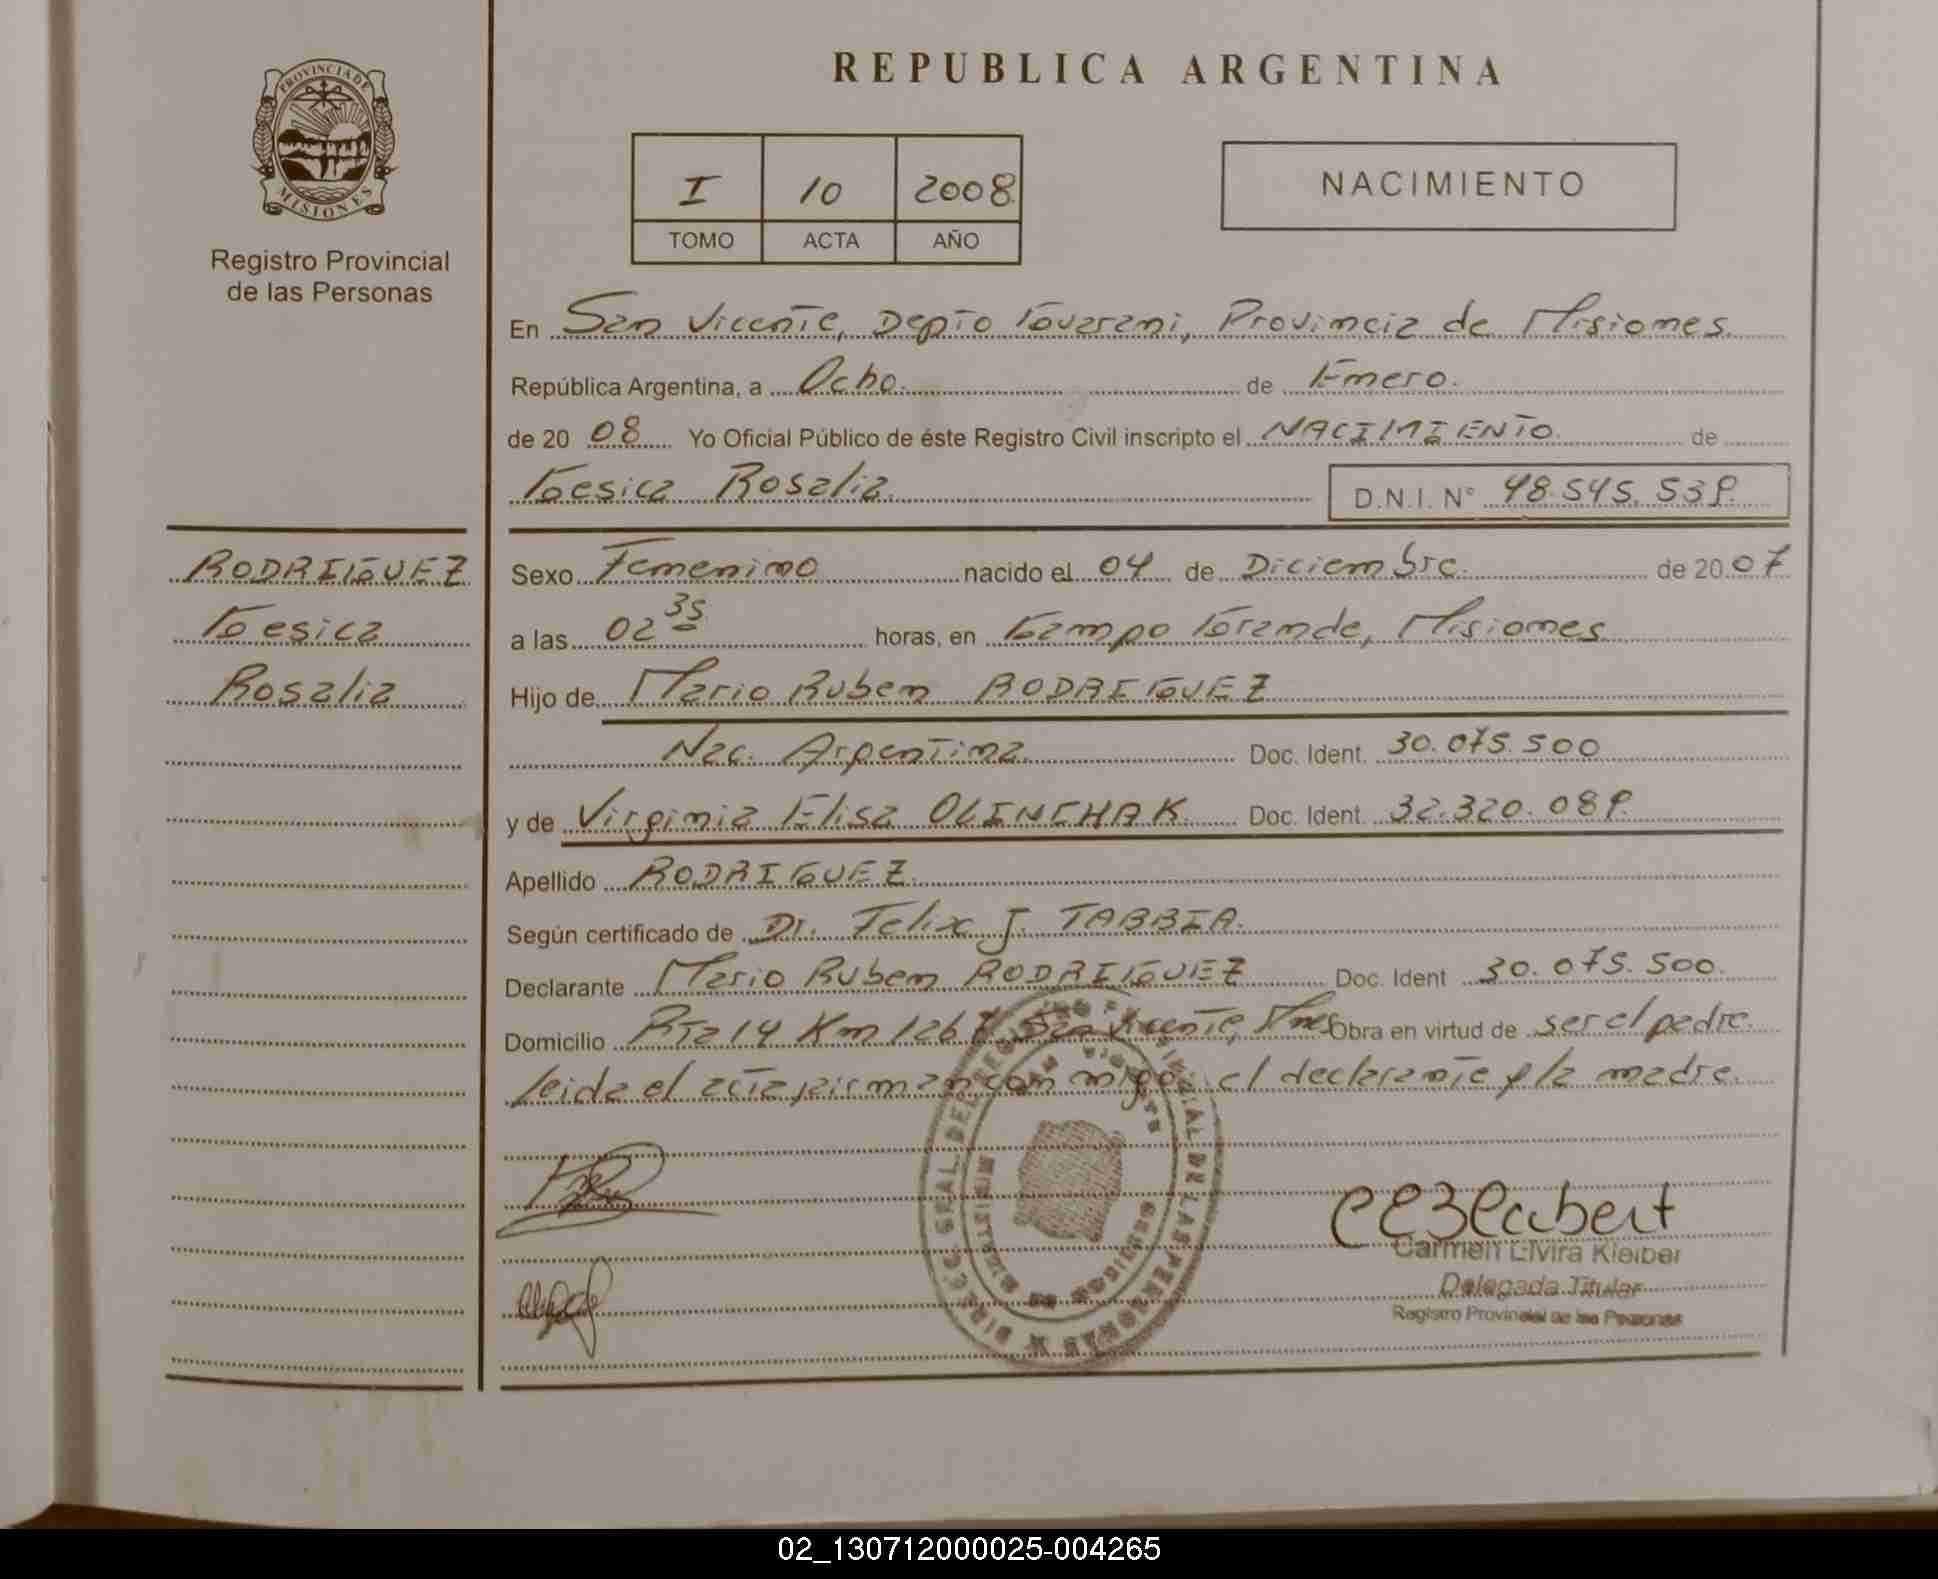 REPUBLICA ARGENTINA
PROVINCIA DE
MISIONES
Registro Provincial
de las Personas
I 10 2008
TOMO ACTA AÑO
NACIMIENTO
En San Vicente, Depto Guarani, Provincia de Misiones.
República Argentina, a Ocho. de Enero.
de 20 08 Yo Oficial Público de éste Registro Civil inscripto el NACIMIENTO. de
Gesica Rosalia. D.N.I. N° 48.545.539.
RODRIGUEZ
Gesica
Rosalia
Sexo Femenino nacido el 04 de Diciembre. de 20 07
a las 02 35 horas, en Campo Grande, Misiones
Hijo de Mario Ruben RODRIGUEZ
Nac. Argentina. Doc. Ident. 30.075.500
y de Virginia Elisa OLINCHAK. Doc. Ident. 32.320.089.
Apellido RODRIGUEZ.
Según certificado de Dr. Felix J. TABBIA.
Declarante Mario Ruben RODRIGUEZ Doc. Ident 30.075.500.
Domicilio Rta 14 Km 1267 San Vicente, Mnes Obra en virtud de ser el padre.
leida el acta, firman conmigo el declarante y la madre.
Carmen Elvira Kleiber
Delegada Titular
Registro Provincial de las Personas
02_130712000025-004265